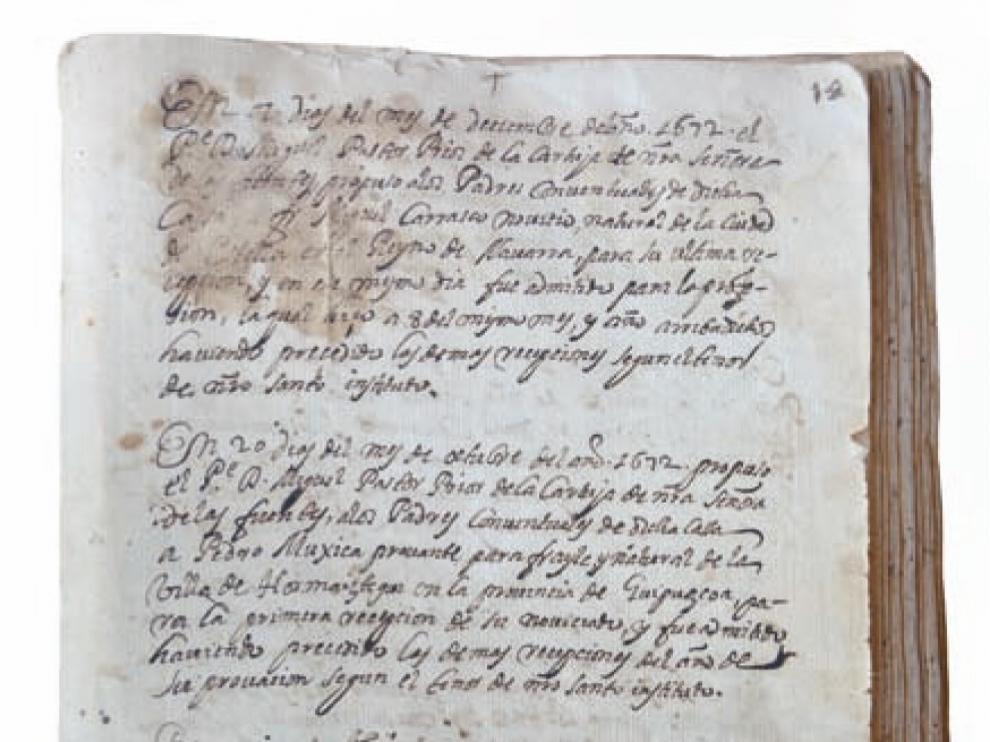 18
En dias del mes de decembre del año 1672 el
Pe D Miguel Pastor Prior de la Cartuja de nra Señora
de las fuentes, propuso a los Padres Conventuales de dicha
Casa Miguel Carrasco novicio, natural de la Ciudad
de en el Reyno de Navarra, para su ultima re-
cepcion, y en el mismo dia fue admitido para la profe-
sion, la qual hiço a 8 del mismo mes, y año arriba dicho
haviendo precedido las demas recepciones segun el tenor
de nro santo instituto.
En 20 dias del mes de octubre del año 1672 propuso
el Pe D. Miguel Pastor Prior de la Cartuja de nra Señora
de las fuentes, a los Padres Conventuales de dicha Casa
a Pedro Muxica provante para frayle y natural de la
Villa de en la provincia de Guipuzcoa, pa-
ra la primera recepcion de su noviciado, y fue admitido
haviendo precedido las demas recepciones del año de
su provacion segun el tenor de nro santo instituto.